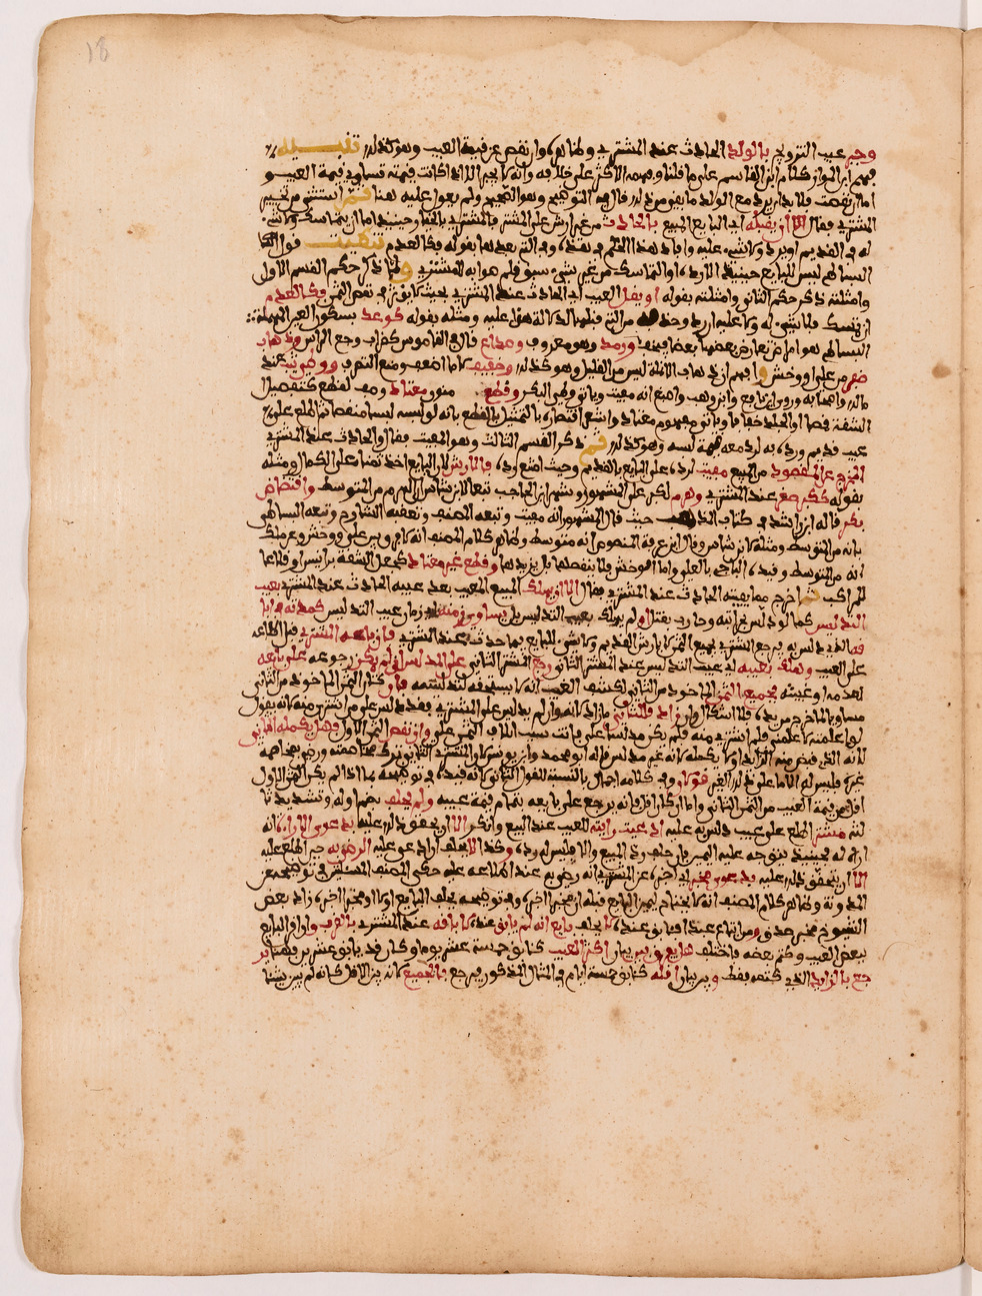 18
وجبر عيب التزويج بالولد الحادث عند المشتري وظاهره وان نقص عن قيمة العيب وهو كذلك تنبيه
فهم ابن المواز كلام ابن القاسم على ما قلنا وفهمه الاكثر على خلافه وانه لا يجبر الا اذا كانت قيمته تساوي قيمة العيب و
اما ان نقصت فلا بد ان يرد مع الولد ما بقي من ذلك قال في التوضيح وهو الصحيح ولم يعول عليه هنا ثم استثنى من تخيير
المشتري فقال الا ان يقبله اي البايع المبيع بالحادث من غير ارش على المشتري فالمشتري بالخيار حينئذ اما ان يتماسك ولا شيء
له في القديم او يرد ولا شيء عليه وافاد هذا الحكم في هذه وفي التي بعدها بقوله فكالعدم تنبيه قول
البساطي ليس للبايع حينئذ الا رده او التماسك من غير شيء سبق قلم صوابه للمشتري ولما ذكر حكم القسم الاول
وامثلته ذكر حكم الثاني وامثلته بقوله او يقل العيب اي الحادث عند المشتري بحيث لا يؤثر في نقص الثمن فكالعدم
ان تمسك فلا شيء له ولا عليه ان رد وحذف من التي قبلها لدلالة هذا عليه ومثله بقوله كوعك بسكون العين المهملة
البساطي هو امراض تعارض بعضها بعضا فيخف ورمد وهو معروف وصداع قال في القاموس كغراب وجع الراس وذهاب
ظفر من علي او وخش وافهم ان ذهاب الانملة ليس من القليل وهو كذلك وخفيف حمى ما اضعف ومنع التصرف ووطء ثيب عند
مالك واصحابه وروى ابن نافع وابن وهب واصبغ انه مفيت وياتي وطي البكر وقطع منور معتاد وصف لقطع كتفصيل
الشقة قمصا او الجلد خفافا وياتي مفهوم معتاد واشعر اقتصاره بالتمثيل بالقطع بانه لو لبسه لبسا منقصا ثم اطلع على
عيب قديم ورده به لرد معه قيمة لبسه وهو كذلك ثم ذكر القسم الثالث وهو المفيت فقال والحادث عند المشتري
المخرج عن المقصود من المبيع مفيت لرده على البايع بالقديم وحيث امتنع رده فالارش لان البايع اخذ ثمنا على الكمال ومثله
بقوله ككبر صغر عند المشتري وهرم لكبر على المشهور وشهر ابن الحاجب تبعا لابن شاس ان الهرم من المتوسط وافتضاض
بكر قاله ابن راشد في كتاب المذهب حيث قال المشهور انه مفيت وتبعه المصنف وتعقبه الشارح وتبعه البساطي
بانه من المتوسط ومثله لابن شاس وقال ابن عرفة المنصوص انه متوسط وظاهر كلام المصنف انه لا فرق بين علي ووخش وعن ملك
انه من المتوسط وقيده الباجي بالعلي واما الوخش فلا ينقصها بل يزيدها وقطع غير معتاد كجعل الشقة برانيس او قلاعا
للمراكب ثم اخرج مما يفيته الحادث عند المشتري فقال الا ان يهلك المبيع المعيب بعد عيبه الحادث عند المشتري بعيب
التدليس كما لو دلس بحرابته وحارب بقتل او لم يهلك بعيب التدليس بل بسماوي زمنه اي زمان عيب التدليس كموته في ابا
قه الذي دلس به يرجع المشتري بجميع الثمن لا بارش القديم ولا شيء للبايع بما حدث عند المشتري فان باعه المشتري قبل اطلاعه
على العيب وهلك بعيبه اي عيب التدليس عند المشتري الثاني رجع المشتري الثاني على المدلس ان لم يمكن رجوعه على بايعه
لعدمه او غيبته بجميع الثمن الماخوذ من الثاني لكشف الغيب انه لا يستحقه لتدليسه فان كان الثمن الماخوذ من الثاني
مساويا لما خرج من يده فلا اشكال وان زاد فللثاني ما زاد لانه وان لم يدلس على المشتري فقد دلس على من اشترى منه كانه يقول
لو اعلمته لاعلمني فلم اشتري منه فلم يكن مدلسا علي فانت سبب اتلاف الثمن علي وان نقص الثمن الاول فهل يكمله الثاني
لانه الذي قبض منه الزايد او لا يكمله لانه غير مدلس قاله ابو محمد وابن يونس لان المشتري الثاني ترك مخاصمته ورضي بمخاصمة
غيره فليس له الا ما على ذلك الغير قولان وفي كلامه اجمال بالنسبة للقول الثاني لانه قيده في توضيحه بما اذا لم يكن الثمن الاول
اقل من قيمة العيب من الثمن الثاني واما ان كان اقل فانه يرجع على بايعه بتمام قيمة عيبه ولم يحلف بضم اوله وتشديد ثا
لثه مشتر اطلع على عيب دلس به عليه ادعيت رؤيته للعيب عند البيع وانكر الا ان يحقق ذلك عليه بدعوى الاراءة انه
اراه له فحينئذ تتوجه عليه اليمين فان حلف رد المبيع والا فليس له رده وكذا لا يحلف ان ادعى عليه الرضى به حين اطلع عليه
الا ان يتحقق ذلك عليه بدعوى مخبر اي اخبره عن المشتري انه رضي به عند اطلاعه عليه حكى المصنف المسئلتين في توضيحه عن
المدونة وظاهر كلام المصنف انه لا يحتاج ليمين البايع قبله ان مخبرا اخبره وفي توضيحه يحلف البايع اولا ان مخبرا اخبره زاد بعض
الشيوخ مخبر صدق ومن ابتاع عبدا فابق عنده لا يحلف بايع انه لم يابق عنده لاباقه عند المشتري بالقرب وان اقر البايع
ببعض العيب وكتم بعضه فاختلف هل يفرق بين بيان اكثر العيب كتابق خمسة عشر يوما وكان قد يابق عشرين فهنا ير
جع بالزايد الذي كتمه فقط وبين بيان اقله كتابق خمسة ايام في المثال المذكور يرجع بالجميع لانه بين الاقل كانه لم يبين شيئا